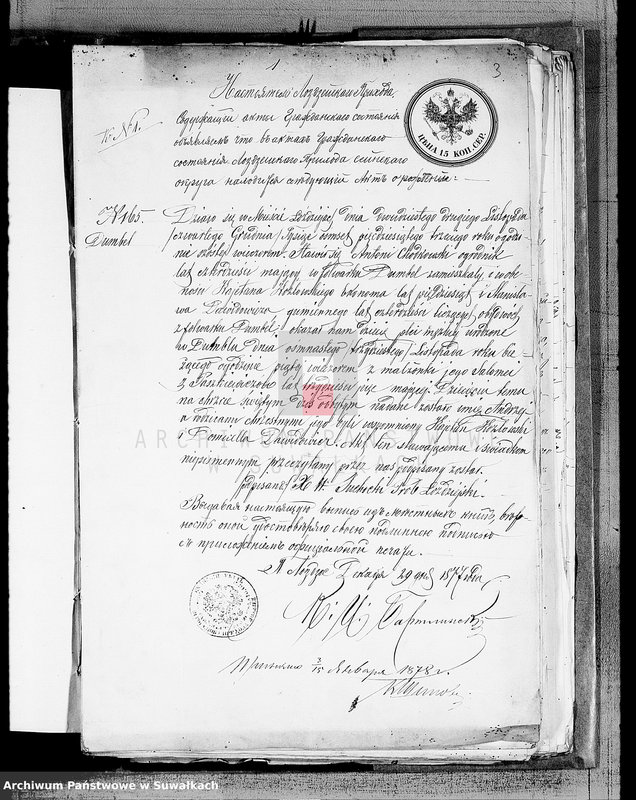 1
3
Настоятель Лоздзейскаго Прихода,
Содержащій акты Гражданскаго состоянія
объявляетъ что въ актахъ Гражданскаго
состоянія Лоздзейскаго Прихода Сейнскаго
округа находится следующій Актъ о рожденіи:
ЦѢНА 15 КОП. СЕР.
къ № 1.
№ 165.
Dumbel
Działo się w Mieście Łoździejach dnia dwudziestego drugiego Listopada
/czwartego Grudnia/ Tysiąc ośmset pięćdziesiątego trzeciego roku o godzi-
nie szóstej wieczorem. Stawił się Antoni Chodkowski ogrodnik
lat czterdzieści mający w folwarku Dumbel zamieszkały, w obe-
cności Kajetana Kozłowskiego Ekonoma lat pięćdziesiąt i Stanisła-
wa Dawidowicza gumiennego lat czterdzieści liczących, obydwóch
z folwarku Dumbel; okazał nam dziecię płci męzkiej urodzone
w Dumblu dnia osmnastego /trzydziestego/ Listopada roku bie-
żącego o godzinie piątej wieczorem z małżonki jego Salomei
z Paszkiewiczów lat trzydzieści mającej. Dziecięciu temu
na chrzcie świętym dziś odbytym nadane zostało imię Andrzej
a rodzicami chrzestnymi jego byli wspomniony Kajetan Kozłowski
i Domicella Dawidowicz. Akt ten stawającemu i świadkom
niepiśmiennym przeczytany przez nas podpisany został.
podpisano/ X. W. Suchocki Prob. Łoździejski.
Выдавая настоящую выпись изъ местныхъ книгъ, вѣр-
ность оной удостовѣряю своею подлинною подписью
съ приложеніемъ официальной печати.
Лоздзее Декабря 29 дня 1877 года
Принято 3/15 Января 1878 г.
ARCHIWUM PAŃSTWOWE
W SUWAŁKACH
Archiwum Państwowe w Suwałkach